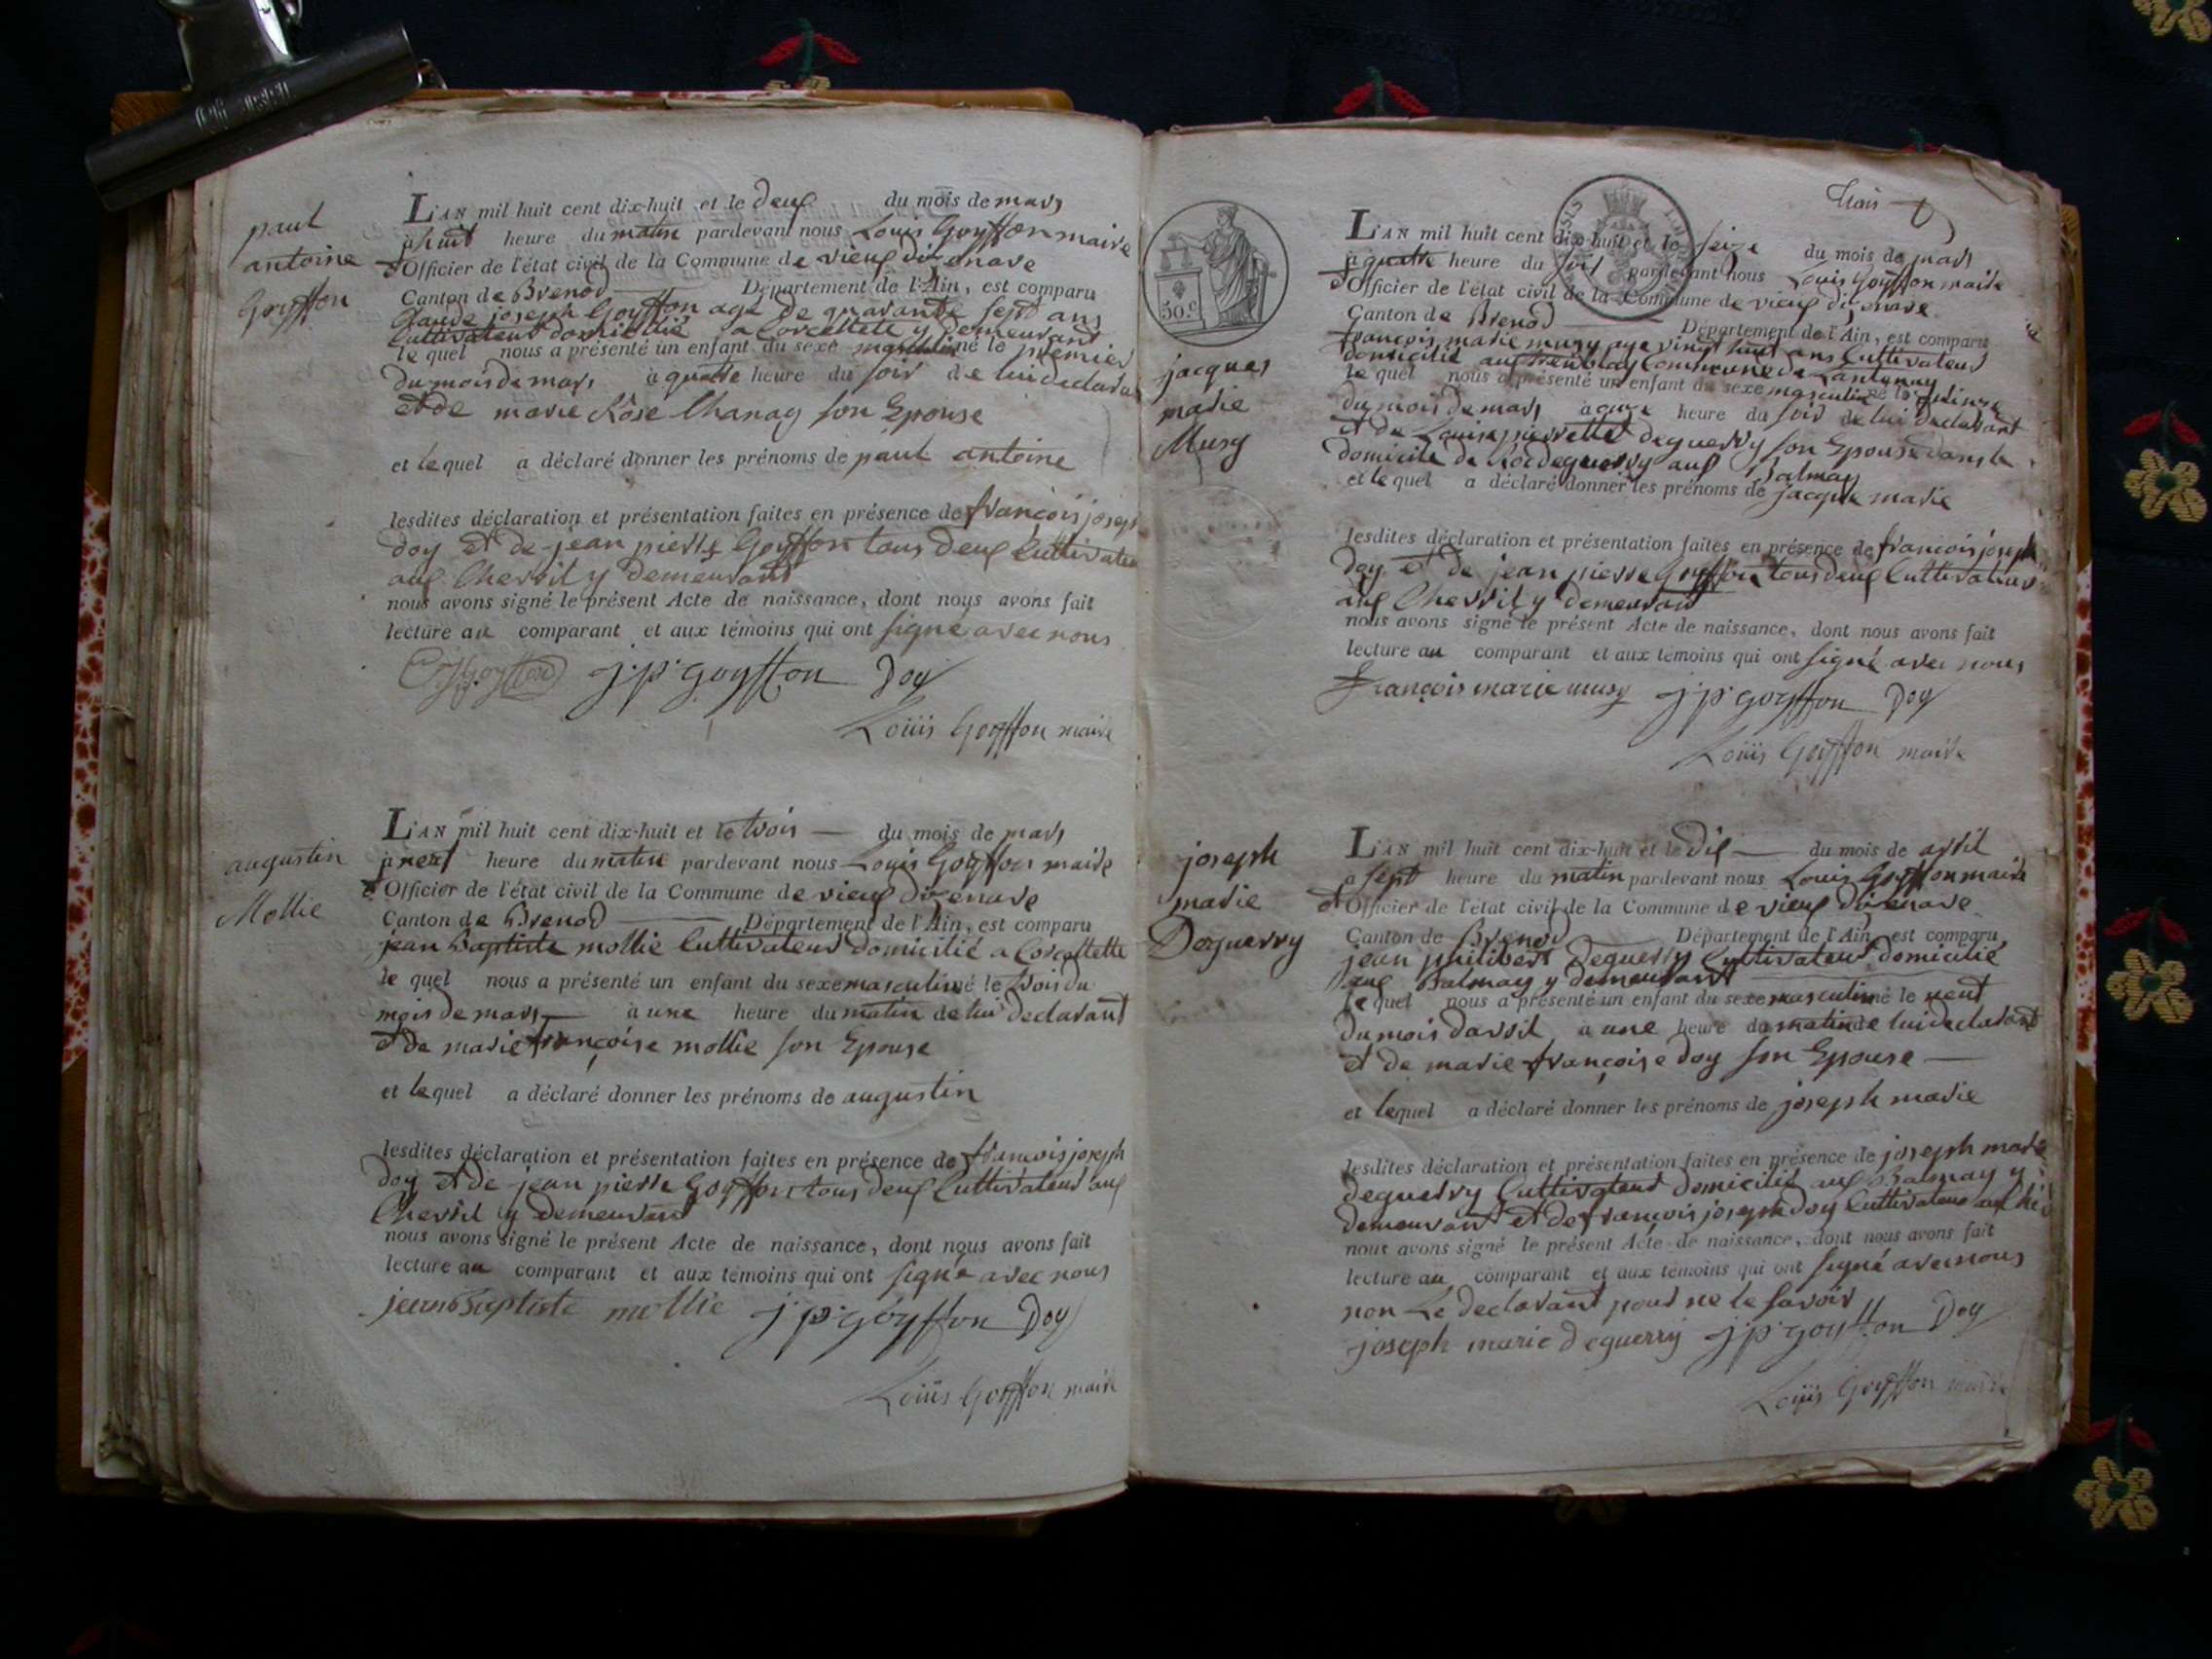 paul
antoine
Goyffon
L'AN mil huit cent dix-huit et le deux du mois de mars
à huit heure du matin pardevant nous Louis Goyffon maire
et Officier de l'état civil de la Commune de vieux dizenave
Canton de Brenod Département de l'Ain, est comparu
Claude joseph Goyffon agé de quarante sept ans
Cultivateur domicilié a Corcelette y demeurant
le quel nous a présenté un enfant du sexe masculin né le premier
du mois de mars à quatre heure du soir de lui declarant
et de marie Rose Chanay son Epouse
et lequel a déclaré donner les prénoms de paul antoine
lesdites déclaration et présentation faites en présence de françois joseph
doy et de jean pierre Goyffon tous deux Cultivateur
aux Chevril y demeurant
nous avons signé le présent Acte de naissance, dont nous avons fait
lecture au comparant et aux témoins qui ont signé avec nous
Goyffon j.p. goyffon Doy
Louis Goyffon maire
augustin
Mollie
L'AN mil huit cent dix-huit et le trois du mois de mars
à neuf heure du matin pardevant nous Louis Goyffon maire
et Officier de l'état civil de la Commune de vieux dizenave
Canton de Brenod Département de l'Ain, est comparu
jean Baptiste mollie Cultivateur domicilié a Corcelette
le quel nous a présenté un enfant du sexe masculin né le trois du
mois de mars à une heure du matin de lui declarant
et de marie françoise mollie son Epouse
et lequel a déclaré donner les prénoms de augustin
lesdites déclaration et présentation faites en présence de françois joseph
doy et de jean pierre Goyffon tous deux Cultivateur aux
Chevril y demeurant
nous avons signé le présent Acte de naissance, dont nous avons fait
lecture au comparant et aux témoins qui ont signé avec nous
jean Baptiste mollie j.p. goyffon Doy
Louis Goyffon maire
trois
50 c
jacques
marie
Musy
L'AN mil huit cent dix-huit et le seize du mois de mars
à quatre heure du soir pardevant nous Louis Goyffon maire
et Officier de l'état civil de la Commune de vieux dizenave
Canton de Brenod Département de l'Ain, est comparu
françois marie musy age vingt huit ans Cultivateur
domicilié aux tremblay Commune de Lantenay
le quel nous a présenté un enfant du sexe masculin né le quinze
du mois de mars à onze heure du soir de lui declarant
et de Louise pierrette deguerry son Epouse dans le
domicile de deguerry aux Balmay
et le quel a déclaré donner les prénoms de jacque marie
lesdites déclaration et présentation faites en présence de françois joseph
doy et de jean pierre Goyffon tous deux Cultivateur
aux Chevril y demeurant
nous avons signé le présent Acte de naissance, dont nous avons fait
lecture au comparant et aux témoins qui ont signé avec nous
françois marie musy j.p. goyffon Doy
Louis Goyffon maire
joseph
marie
Deguerry
L'AN mil huit cent dix-huit et le dix du mois de avril
à sept heure du matin pardevant nous Louis Goyffon maire
et Officier de l'état civil de la Commune de vieux dizenave
Canton de Brenod Département de l'Ain, est comparu
jean philibert Deguerry Cultivateur domicilié
aux Balmay y demeurant
le quel nous a présenté un enfant du sexe masculin né le neuf
du mois d'avril à une heure du matin de lui declarant
et de marie françoise doy son Epouse
et lequel a déclaré donner les prénoms de joseph marie
lesdites déclaration et présentation faites en présence de joseph marie
deguerry Cultivateur domicilié aux Balmay y
demeurant et de françois joseph doy Cultivateur
nous avons signé le présent Acte de naissance, dont nous avons fait
lecture au comparant et aux témoins qui ont signé avec nous
non Le declarant pour ne le savoir
joseph marie deguerry j.p. goyffon Doy
Louis Goyffon maire